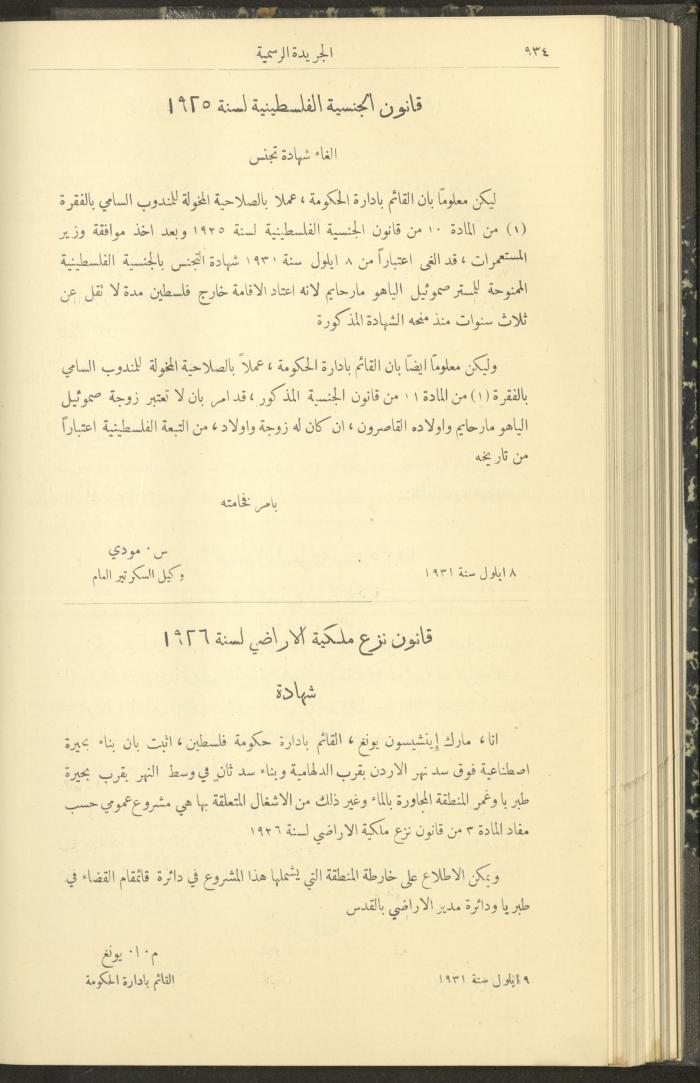 ٩٣٤
الجريدة الرسمية
قانون الجنسية الفلسطينية لسنة ١٩٢٥
الغاء شهادة تجنس
ليكن معلومًا بان القائم بادارة الحكومة ، عملا بالصلاحية المخولة للمندوب السامي بالفقرة
(١) من المادة ١٠ من قانون الجنسية الفلسطينية لسنة ١٩٢٥ وبعد اخذ موافقة وزير
المستعمرات ، قد الغى اعتباراً من ٨ ايلول سنة ١٩٣١ شهادة التجنس بالجنسية الفلسطينية
الممنوحة للمستر صموئيل الياهو مارحايم لانه اعتاد الاقامة خارج فلسطين مدة لا تقل عن
ثلاث سنوات منذ منحه الشهادة المذكورة
وليكن معلومًا ايضًا بان القائم بادارة الحكومة ، عملاً بالصلاحية المخولة للمندوب السامي
بالفقرة (١) من المادة ١١ من قانون الجنسية المذكور ، قد امر بان لا تعتبر زوجة صموئيل
الياهو مارحايم واولاده القاصرون ، ان كان له زوجة واولاد ، من التبعة الفلسطينية اعتباراً
من تاريخه
بامر فخامته
س ٠ مودي
٨ ايلول سنة ١٩٣١
وكيل السكرتير العام
قانون نزع ملكية الاراضي لسنة ١٩٢٦
شهادة
انا ، مارك إيتشيسون يونغ ، القائم بادارة حكومة فلسطين ، اثبت بان بناء بحيرة
اصطناعية فوق سد نهر الاردن بقرب الدلهامية وبناء سد ثانٍ في وسط النهر بقرب بحيرة
طبريا وغمر المنطقة المجاورة بالماء وغير ذلك من الاشغال المتعلقة بها هي مشروع عمومي حسب
مفاد المادة ٣ من قانون نزع ملكية الاراضي لسنة ١٩٢٦
ويمكن الاطلاع على خارطة المنطقة التي يشملها هذا المشروع في دائرة قائمقام القضاء في
طبريا ودائرة مدير الاراضي بالقدس
م ٠ ا ٠ يونغ
٩ ايلول سنة ١٩٣١
القائم بادارة الحكومة